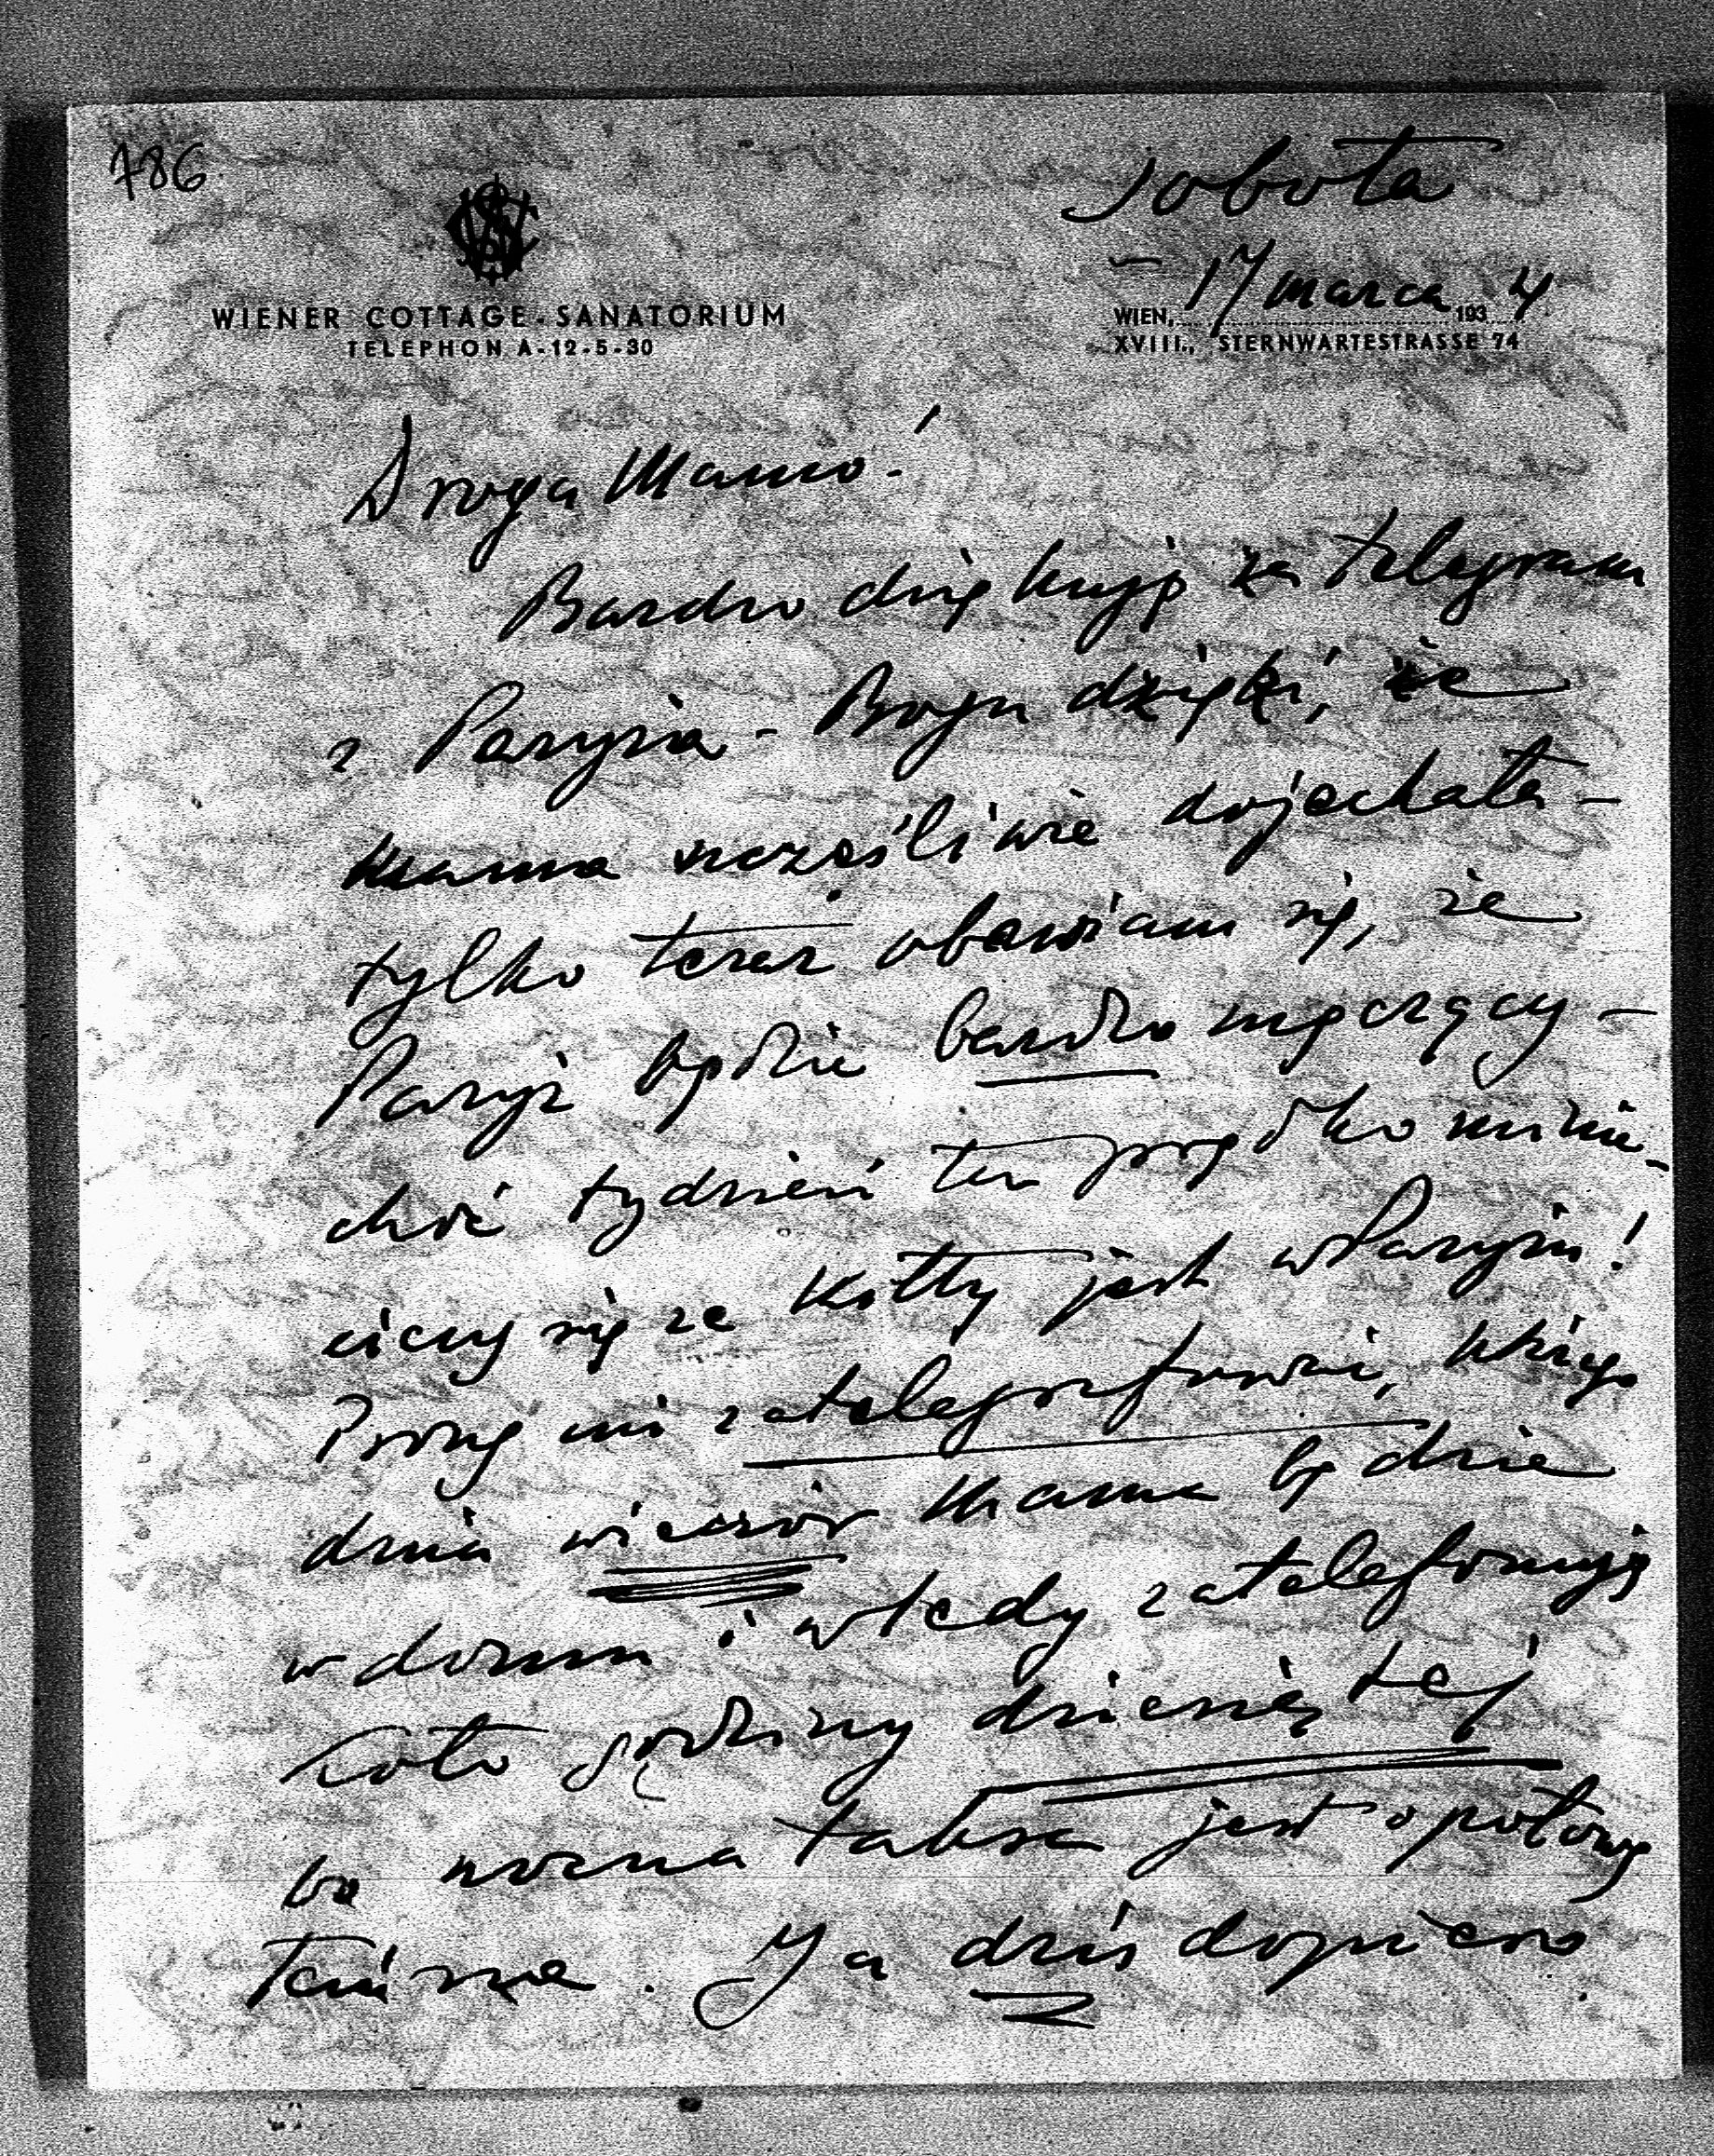 786
Sobota
WIENER COTTAGE-SANATORIUM
TELEPHON A-12-5-30
WIEN, 17 marca 1934
XVIII., STERNWARTESTRASSE 74
Droga Mamo!
Bardzo dziękuję za telegram
z Paryża - Bogu dzięki, że
Mama szczęśliwie dojechała -
tylko teraz obawiam się, że
Paryż będzie bardzo męczący -
choć tydzień ten prędko minie -
cieszy się że Kotty jest w Paryżu!
Proszę mi zatelegrafować, którego
dnia wieczór Mama będzie
w domu i wtedy zatelefonuję
koło godziny dziesiątej
bo nocna taksa jest o połowę
tańsza. Ja dziś dopiero